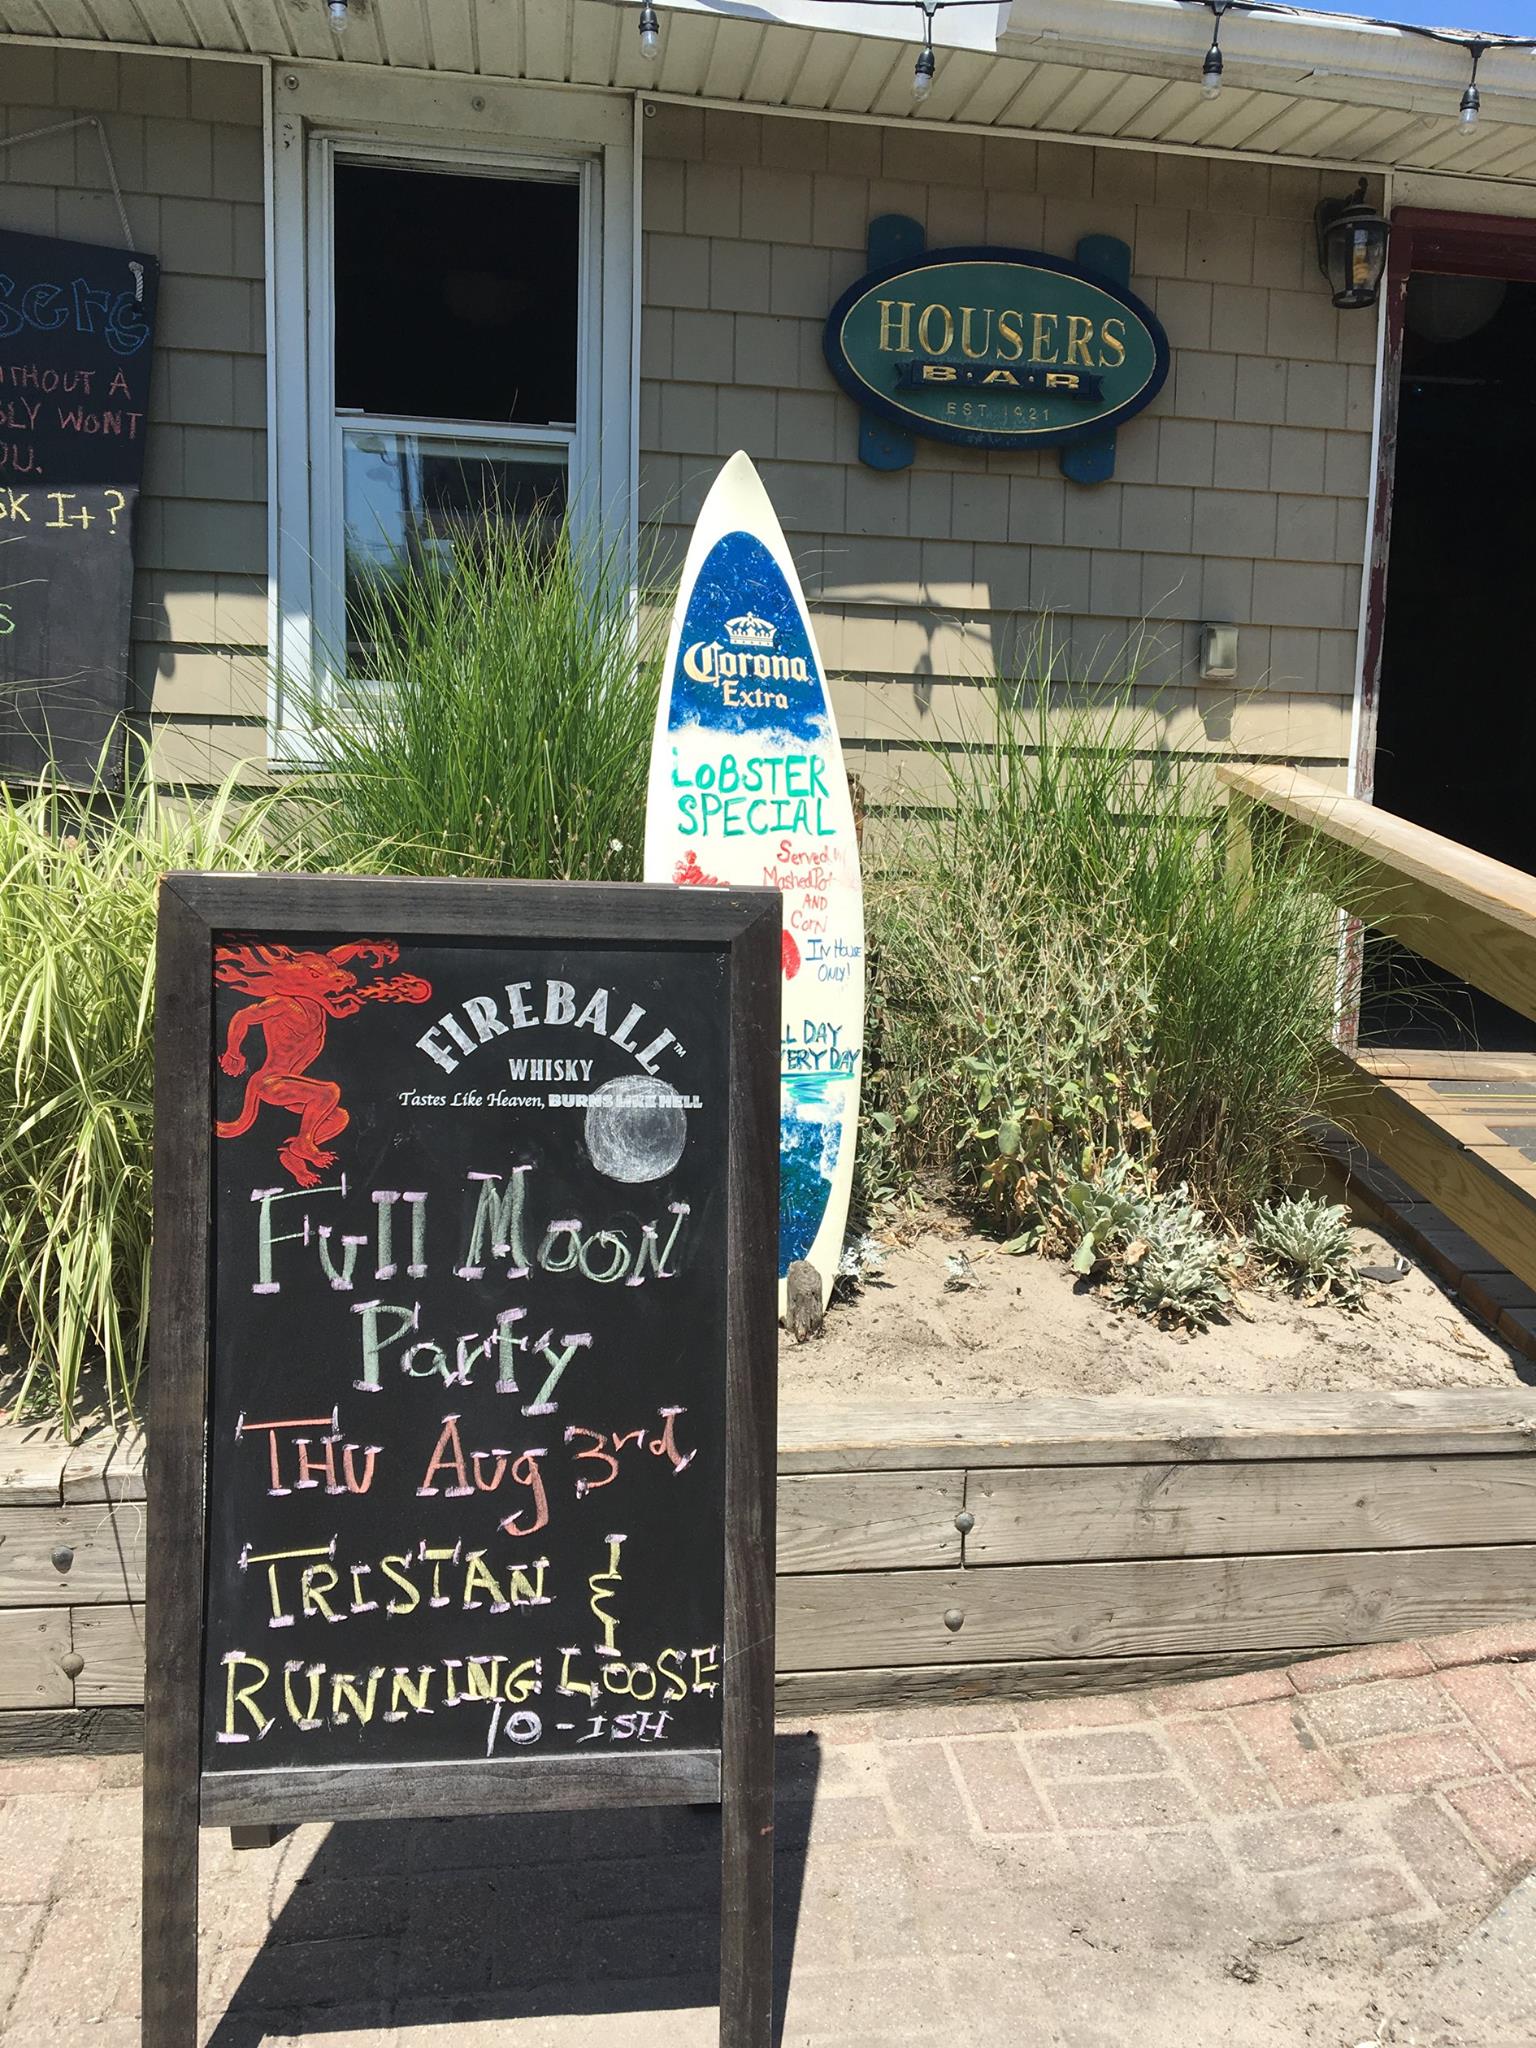 sers
ITHOUT A
BLY WONT
OU.
SK It?
S
HOUSERS
B·A·R
EST. 1921
Corona
Extra
LOBSTER
SPECIAL
Served w/
Mashed Pot
AND
Corn
IN HOUSE
ONLY!
LL DAY
VERY DAY
FIREBALL™
WHISKY
Tastes Like Heaven, BURNS LIKE HELL
Full Moon
Party
THU Aug 3rd,
TRISTAN &
RUNNING LOOSE
10-ISH